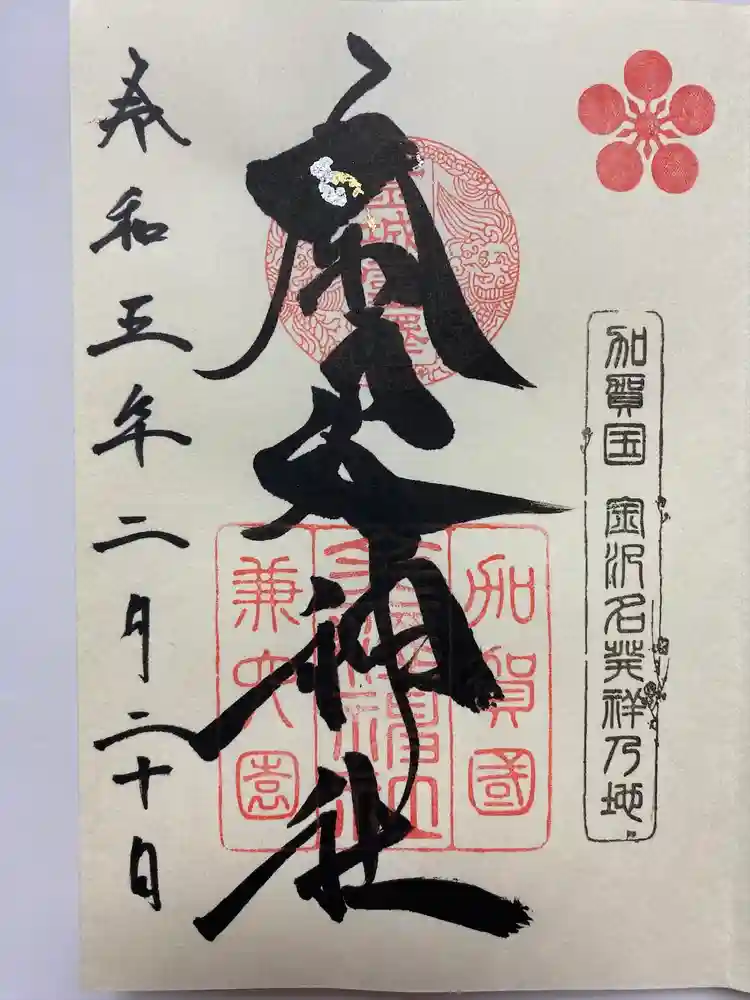 加賀国 金沢名発祥乃地
金城霊澤
神社
加賀國
兼六園
令和五年二月二十日